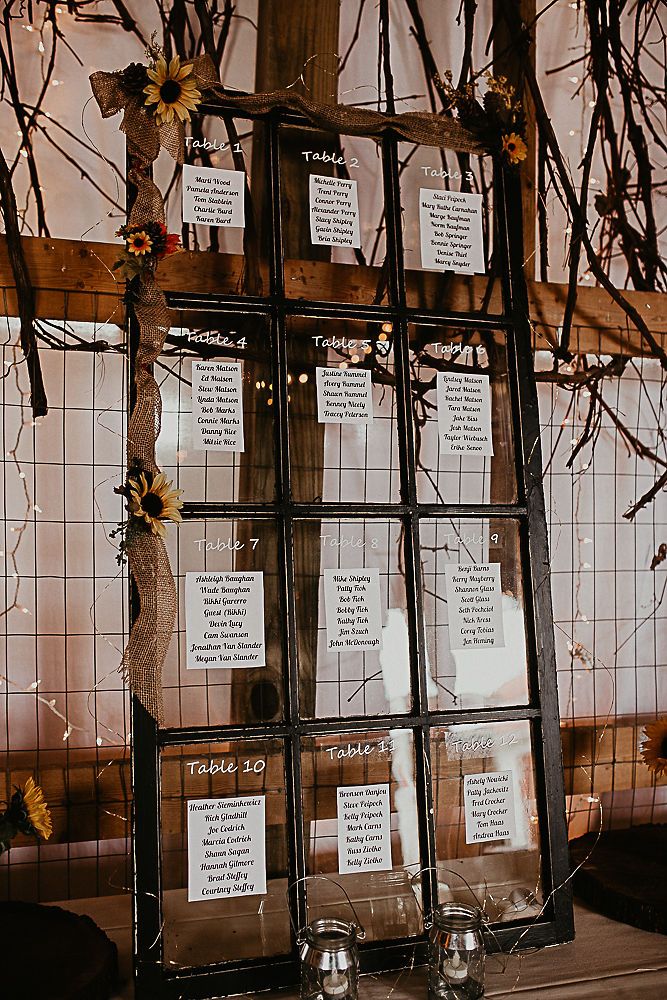 Table 1
Marti Wood
Pamela Anderson
Tom Stablein
Charlie Burd
Karen Burd
Table 2
Michelle Perry
Trent Perry
Connor Perry
Alexander Perry
Stacy Shipley
Gavin Shipley
Bria Shipley
Table 3
Staci Peipock
Mary Ruthe Carnahan
Marge Kaufman
Norm Kaufman
Bob Springer
Bonnie Springer
Denise Thiel
Marcy Snyder
Table 4
Karen Matson
Ed Matson
Stew Matson
Linda Matson
Bob Marks
Connie Marks
Danny Rice
Mitzie Rice
Table 5
Justine Rummel
Avery Rummel
Shawn Rummel
Kenney Nicely
Tracey Peterson
Table 6
Lindsey Matson
Jarod Matson
Rachel Matson
Tara Matson
Jake Biss
Josh Matson
Taylor Wiebusch
Eriko Senoo
Table 7
Ashleigh Baughan
Wade Baughan
Rikki Garerro
Guest (Rikki)
Devin Lucy
Cam Swanson
Jonathan Van Slander
Megan Van Slander
Table 8
Mike Shipley
Patty Tiok
Bob Tiok
Bobby Tiok
Kathy Tiok
Jim Szuch
John McDonough
Table 9
Benji Burns
Kerry Mayberry
Shannon Glass
Scott Glass
Seth Pochciol
Nick Kress
Corey Tobias
Jen Fleming
Table 10
Heather Sieminkewicz
Rick Gladhill
Joe Costrick
Marcia Costrick
Shawn Sagan
Hannah Gilmore
Brad Steffey
Courtney Steffey
Table 11
Bronson Danjou
Steve Peipock
Kelly Peipock
Mark Carns
Kathy Carns
Russ Ziolko
Kelly Ziolko
Table 12
Ashely Nowicki
Patty Jackovitz
Fred Crocker
Mary Crocker
Tom Haas
Andrea Haas